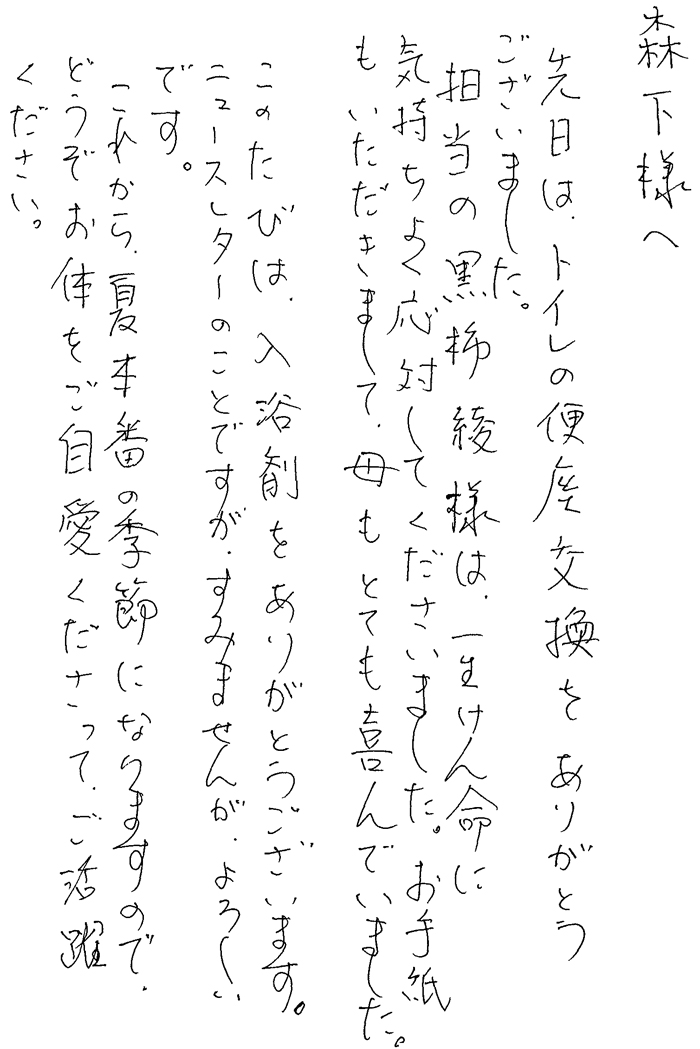 森下様へ
先日は、トイレの便座交換をありがとう
ございました。
担当の黒柿綾様は、一生けん命に
気持ちよく応対してくださいました。お手紙
もいただきまして、母もとても喜んでいました。
このたびは、入浴剤をありがとうございます。
ニュースレターのことですが、すみませんが、よろしい
です。
これから、夏本番の季節になりますので、
どうぞお体をご自愛くださって、ご活躍
ください。